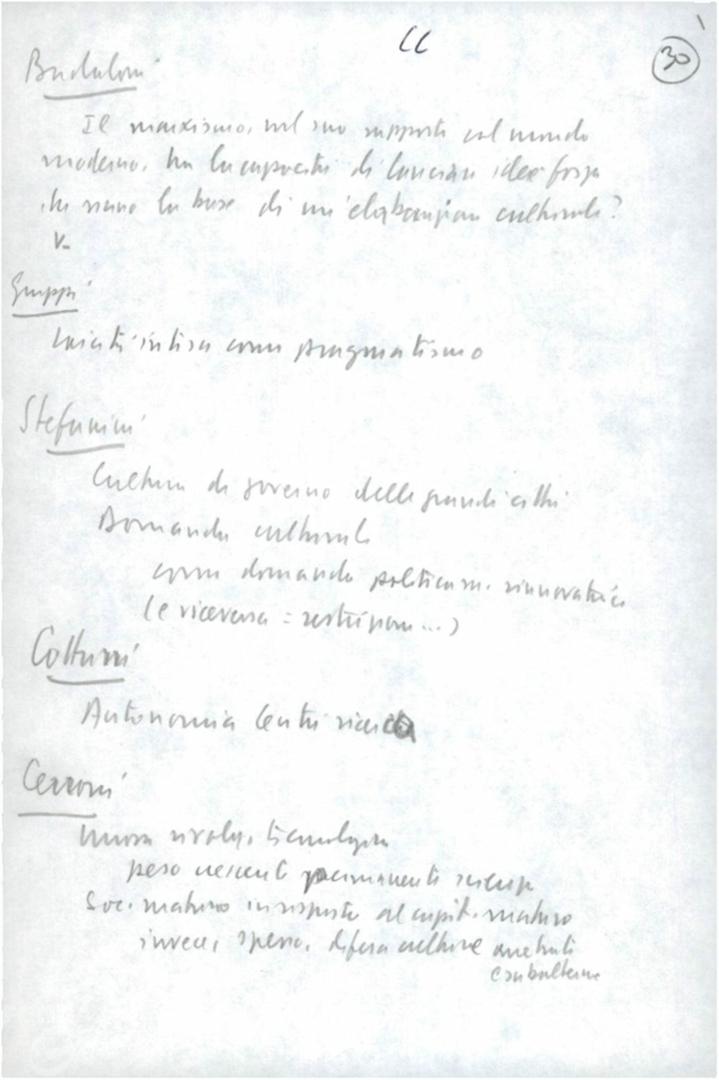 CC
30
Badaloni
Il marxismo, nel suo rapporto col mondo
moderno, ha la capacità di lanciare idee forza
che siano la base di un'elaborazione culturale?
V-
Gruppi
laicità intesa come pragmatismo
Stefanini
Cultura di governo delle grandi città
Domanda culturale
come domanda politicam. rinnovatrice
(e viceversa = restrizioni...)
Cotturri
Autonomia Centri ricerca
Cerroni
nuova rivoluz. tecnologica
peso crescente permanente scienza
Soc. maturo in risposta al capit. maturo
invece, spesso, difesa culture arretrate
e subalterne